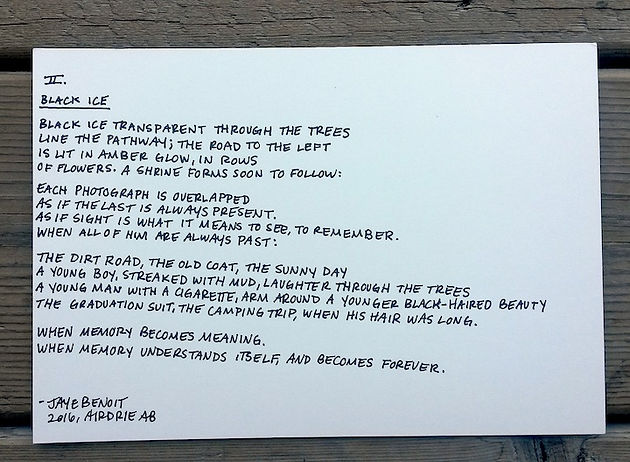 II.
BLACK ICE
BLACK ICE TRANSPARENT THROUGH THE TREES
LINE THE PATHWAY; THE ROAD TO THE LEFT
IS LIT IN AMBER GLOW, IN ROWS
OF FLOWERS. A SHRINE FORMS SOON TO FOLLOW:
EACH PHOTOGRAPH IS OVERLAPPED
AS IF THE LAST IS ALWAYS PRESENT.
AS IF SIGHT IS WHAT IT MEANS TO SEE, TO REMEMBER.
WHEN ALL OF HIM ARE ALWAYS PAST:
THE DIRT ROAD, THE OLD COAT, THE SUNNY DAY
A YOUNG BOY, STREAKED WITH MUD, LAUGHTER THROUGH THE TREES
A YOUNG MAN WITH A CIGARETTE, ARM AROUND A YOUNGER BLACK-HAIRED BEAUTY
THE GRADUATION SUIT, THE CAMPING TRIP, WHEN HIS HAIR WAS LONG.
WHEN MEMORY BECOMES MEANING.
WHEN MEMORY UNDERSTANDS ITSELF, AND BECOMES FOREVER.
- JAYE BENOIT
2016, AIRDRIE AB